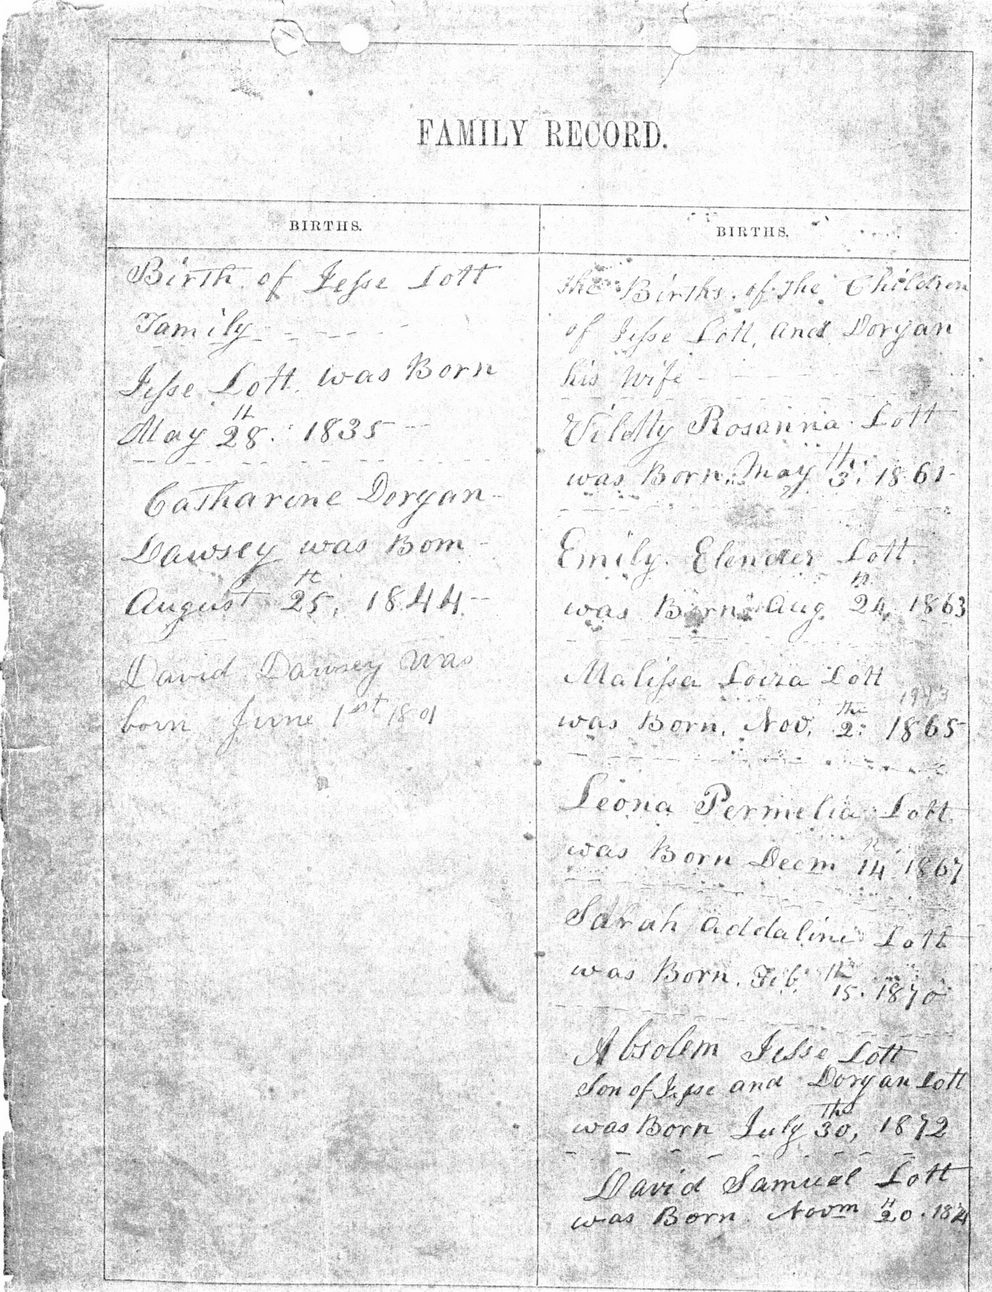 FAMILY RECORD.
BIRTHS.
Birth of Jesse Lott
Family
Jesse Lott was Born
May 28th 1835
Catharine Doryan
Dawsey was Born
August 25th, 1844
David Dawsey was
born June 1st 1801
BIRTHS.
The Births of the Children
of Jesse Lott, and Doryan
his Wife
Rosanna Lott
was Born. May 3th 1861
Emily Elender Lott.
was Born Aug 24th, 1863
Malissa Loiza Lott
1943
was Born. Nov. 2the 1865
Leona Permelia Lott
was Born Decm 14th 1867
Sarah addaline Lott
was Born. Feb. 15th. 1870
Absolem Jesse Lott
Son of Jesse and Doryan Lott
was Born July 30the, 1872
David Samuel Lott
was Born. Novm 20th. 1874